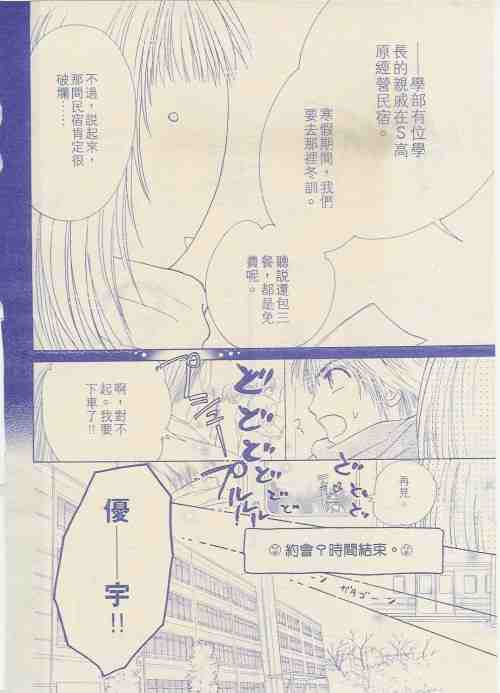 ——學部有位學
長的親戚在S高
原經營民宿。
寒假期間,我們
要去那裡冬訓。
聽說還包三
餐,都是免
費呢。
不過,說起來,
那間民宿肯定很
破爛……
再見。
ど
た
ど
ど
ど
ど
ど
ど
プルルル
啊,對不
起。我要
下車了!!
約會?時間結束。
ガタゴーン
優——宇!!